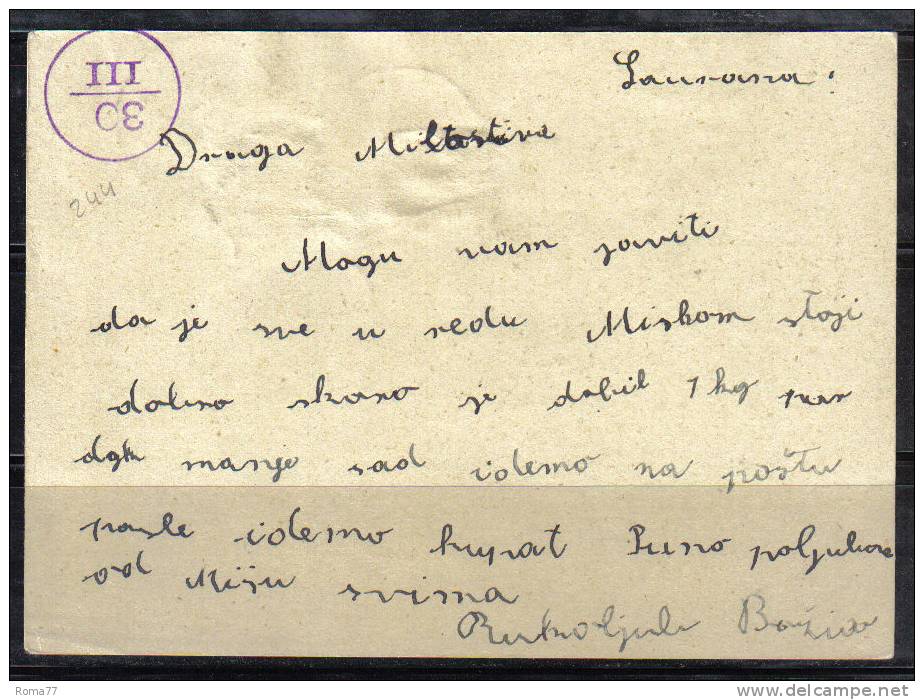 III
30
Laurana:
Draga Milostiva
244
Mogu vam javiti
da je sve u redu Miskom stoji
dobro skoro je dobil 1 kg par
dgk manje sad idemo na poštu
posle idemo kupat Puno poljubac
od Mišu svima
Rukoljub Božica
Roma77
delcampe.net